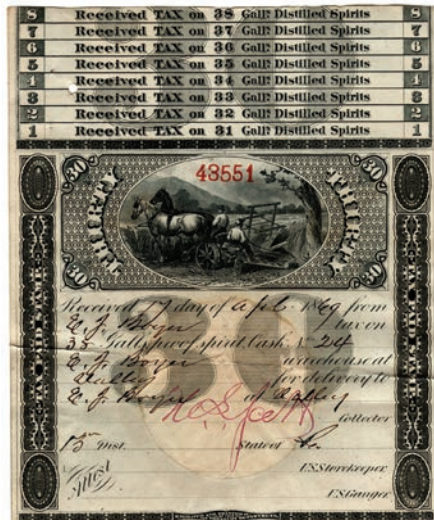 8 Received TAX on 38 Galls Distilled Spirits 8
7 Received TAX on 37 Galls Distilled Spirits 7
6 Received TAX on 36 Galls Distilled Spirits 6
5 Received TAX on 35 Galls Distilled Spirits 5
4 Received TAX on 34 Galls Distilled Spirits 4
3 Received TAX on 33 Galls Distilled Spirits 3
2 Received TAX on 32 Galls Distilled Spirits 2
1 Received TAX on 31 Galls Distilled Spirits 1
30 48551 30
THIRTY THIRTY
30 30
Received 17 day of 1869 from
E. J. Boyer tax on
38 Galls proof spirit Cask No 24
E. J. Boyer warehouse at
for delivery to
E. J. Boyer of
Collector
15th Dist. State of Pa.
Attest
U.S. Storekeeper
U.S. Gauger